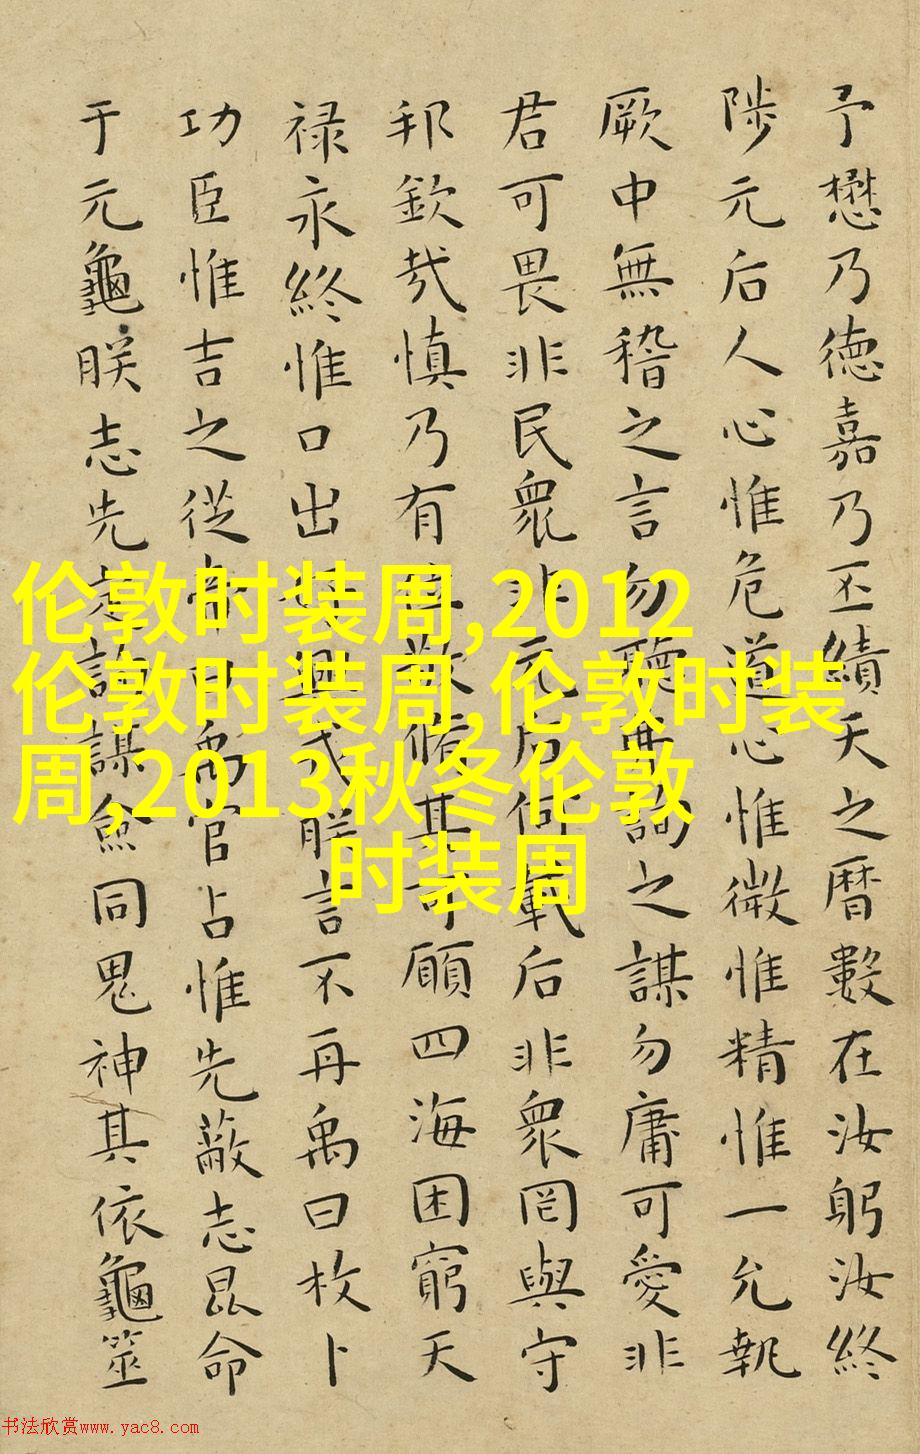 予懋乃德嘉乃丕績天之曆數在汝躬汝終
陟元后人心惟危道心惟微惟精惟一允執
厥中無稽之言勿聽弗詢之謀勿庸可愛非
君可畏非民衆非元后何戴后非衆罔與守
邦欽哉慎乃有位敬脩其可願四海困窮天
禄永終惟口出好興戎朕言不再禹曰枚卜
功臣惟吉之從帝曰禹官占惟先蔽志昆命
于元龜朕志先定詢謀僉同鬼神其依龜筮
伦敦时装周,2012
伦敦时装周,伦敦时装
周,2013秋冬伦敦
时装周
书法欣赏www.yac8.com